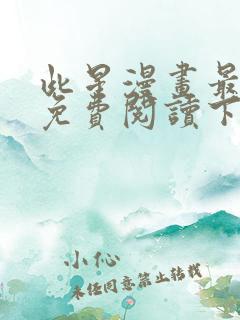 此星漫畫最
免費閱讀下
小伈
未经同意禁止转载